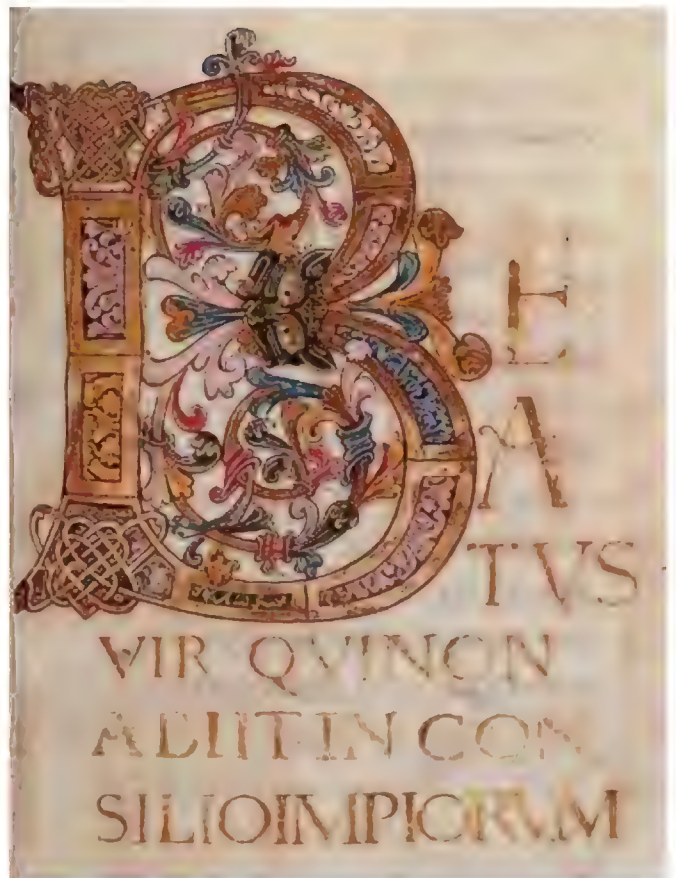 B
E
A
TVS
VIR QVINON
ABIIT IN CON
SILIOIMPIORVM